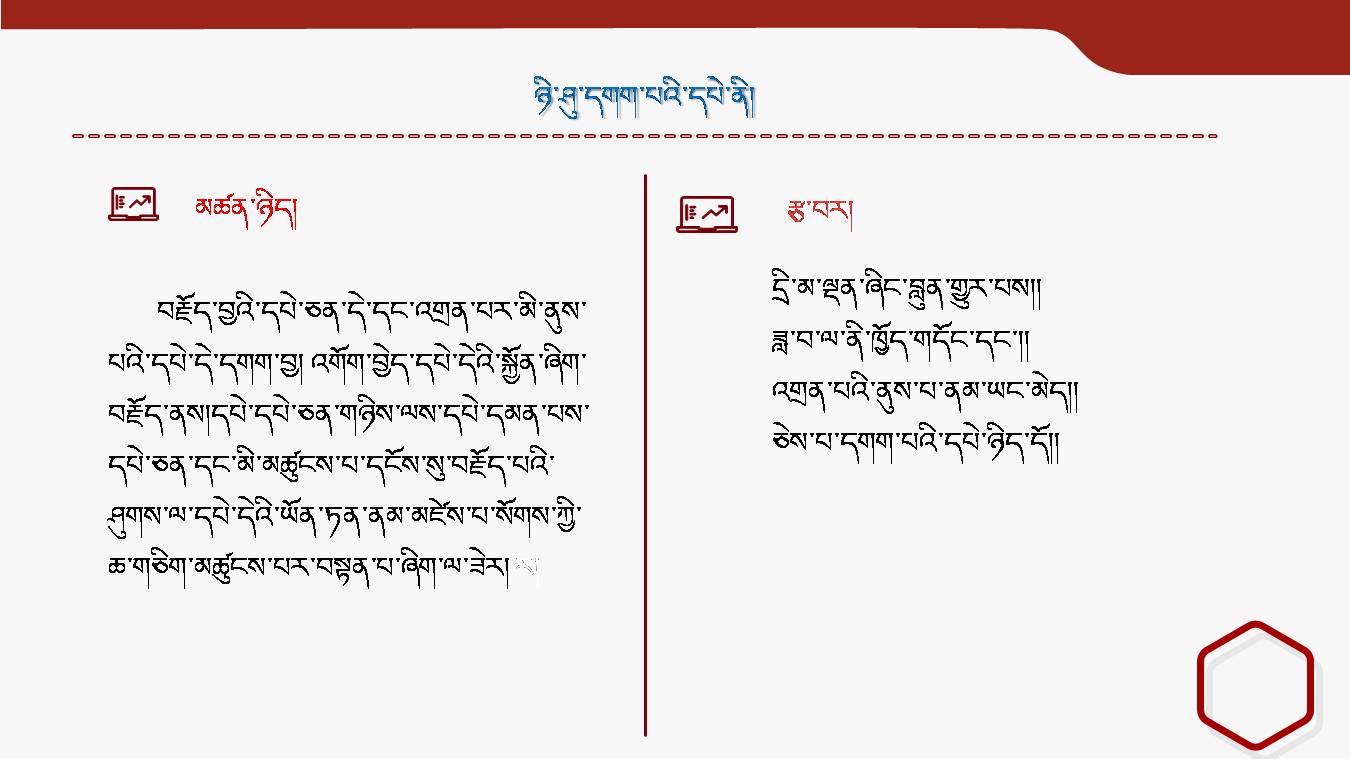 ཉི་ཤུ་དགག་པའི་དཔེ་ནི།
མཚན་ཉིད།
བརྗོད་བྱའི་དཔེ་ཅན་དེ་དང་འགྲན་པར་མི་ནུས་
པའི་དཔེ་དེ་དགག་བྱ། འགོག་བྱེད་དཔེ་དེའི་སྐྱོན་ཞིག་
བརྗོད་ནས།དཔེ་དཔེ་ཅན་གཉིས་ལས་དཔེ་དམན་པས་
དཔེ་ཅན་དང་མི་མཚུངས་པ་དངོས་སུ་བརྗོད་པའི་
ཤུགས་ལ་དཔེ་དེའི་ཡོན་ཏན་ནམ་མཛེས་པ་སོགས་ཀྱི་
ཆ་གཅིག་མཚུངས་པར་བསྟན་པ་ཞིག་ལ་ཟེར།
རྩ་བར།
དྲི་མ་ལྡན་ཞིང་བླུན་གྱུར་པས།།
ཟླ་བ་ལ་ནི་ཁྱོད་གདོང་དང་།།
འགྲན་པའི་ནུས་པ་ནམ་ཡང་མེད།།
ཅེས་པ་དགག་པའི་དཔེ་ཉིད་དོ།།